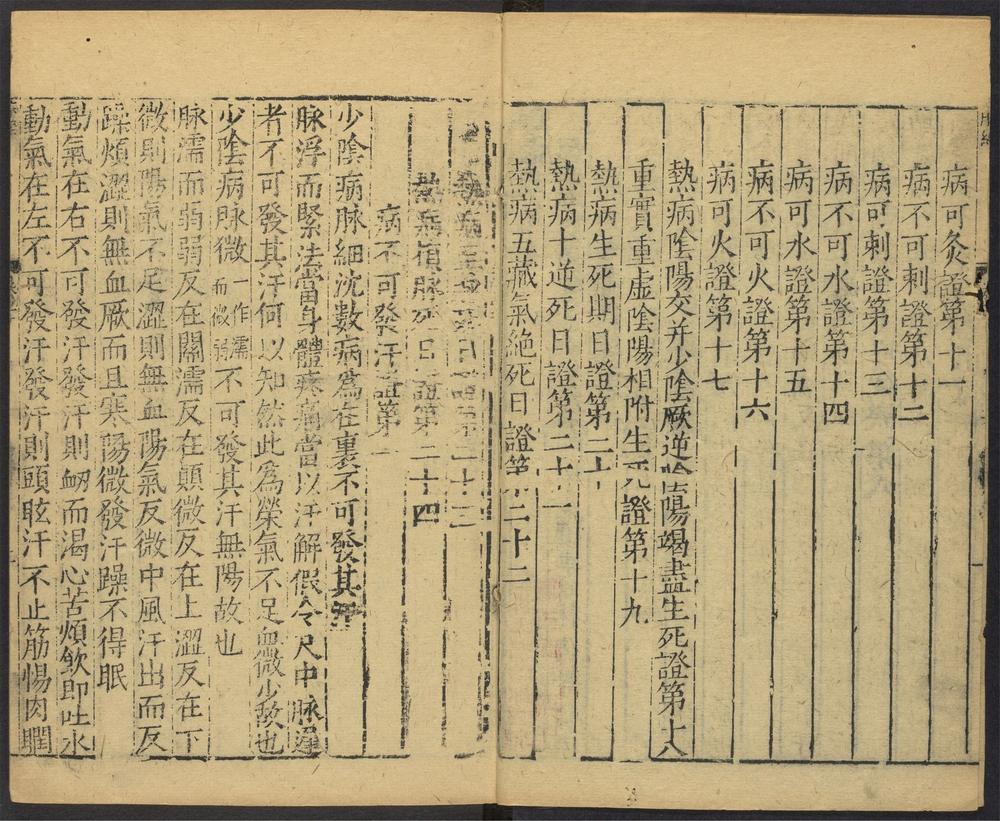 病可灸證第十一
病不可刺證第十二
病可刺證第十三
病不可水證第十四
病可水證第十五
病不可火證第十六
病可火證第十七
熱病陰陽交并少陰厥逆陰陽竭盡生死證第十八
重實重虛陰陽相附生死證第十九
熱病生死期日證第二十
熱病十逆死日證第二十一
熱病五藏氣絕死日證第二十二
熱病至脉死日證第二十三
熱病損脉死日證第二十四
病不可發汗證第一
少陰病脉細沈數病爲在裏不可發其汗
脉浮而緊法當身體疼痛當以汗解假令尺中脉遲
者不可發其汗何以知然此爲榮氣不足血微少故也
少陰病脉微一作濡而微弱不可發其汗無陽故也
脉濡而弱弱反在關濡反在顛微反在上澀反在下
微則陽氣不足澀則無血陽氣反微中風汗出而反
躁煩澀則無血厥而且寒陽微發汗躁不得眠
動氣在右不可發汗發汗則衂而渴心苦煩飲即吐水
動氣在左不可發汗發汗則頭眩汗不止筋惕肉瞤